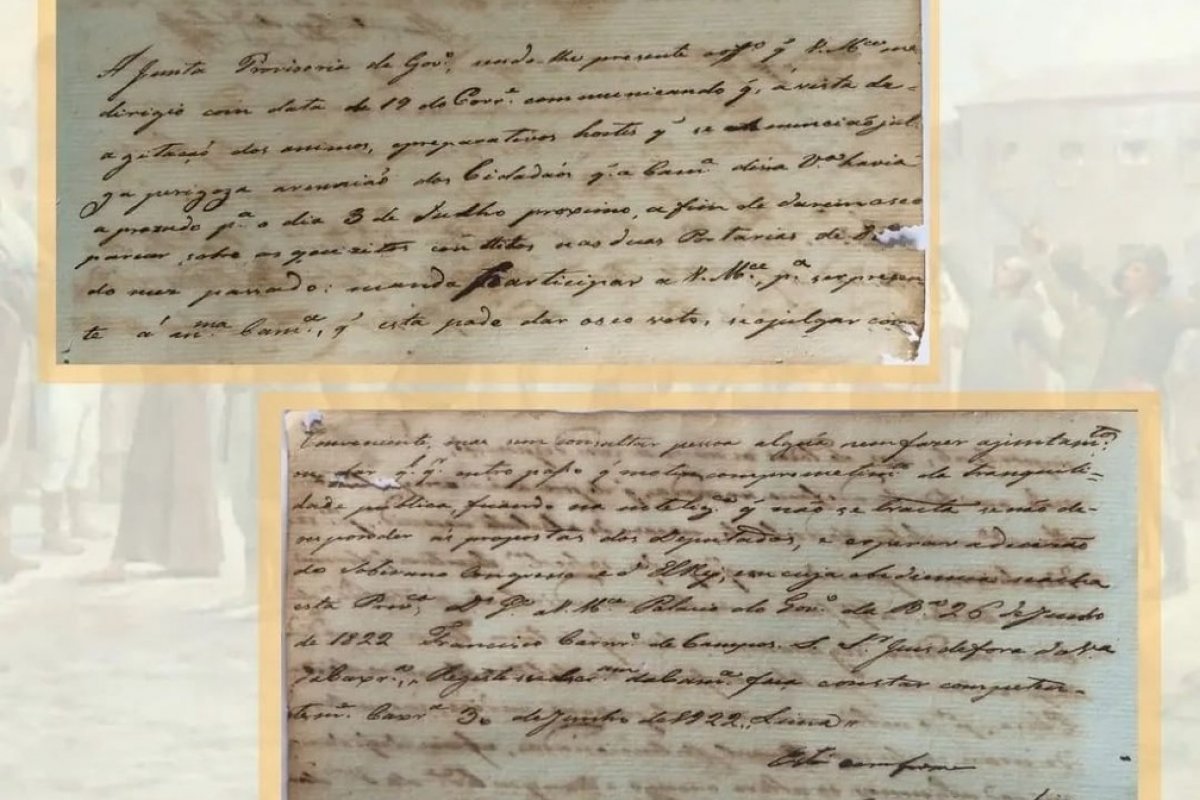 A Junta Provisoria de Gov.º, sendo-lhe presente o off.º q̃ V. M.ce me
dirigio com data de 19 do Corr.e communicando q̃, á vista da
agitação dos animos, e preparativos hostis q̃ se annuncião jul
ga perigoza a reunião dos Cidadãos q̃ a Cam.ª dessa V.ª havia
aprazado p.ª o dia 3 de Julho proximo, a fim de darem o seo
parecer sobre os quezitos contidos nas duas Portarias de
do mez passado: manda participar a V. M.ce, p.ª ser presen
te á m.ma Cam.ª, q̃ esta pode dar o seo voto, se o julgar con
veniente, mas sem consultar pessoa algũa, nem fazer ajuntam.to
ou dar q.l q.r outro passo q̃ motive comprometim.to da tranquili=
dade publica, ficando na intelig.ª q̃ não se tracta senão de
responder ás propostas dos Deputados, e esperar a decisão
do Soberano Congresso e d' ElRey, em cuja obediencia se acha
esta Prov.ª D.s G.e a V. M.ce Palacio do Gov.º da B.ª 26 de Junho
de 1822 Francisco Carnr.º de Campos. S. S.r Juis de fora da V.ª
da Caxr.ª, Registe-se da Cam.ª faça constar competen-
tem.e Caxr.ª 30 de Junho de 1822,, Lima,,
Está conforme